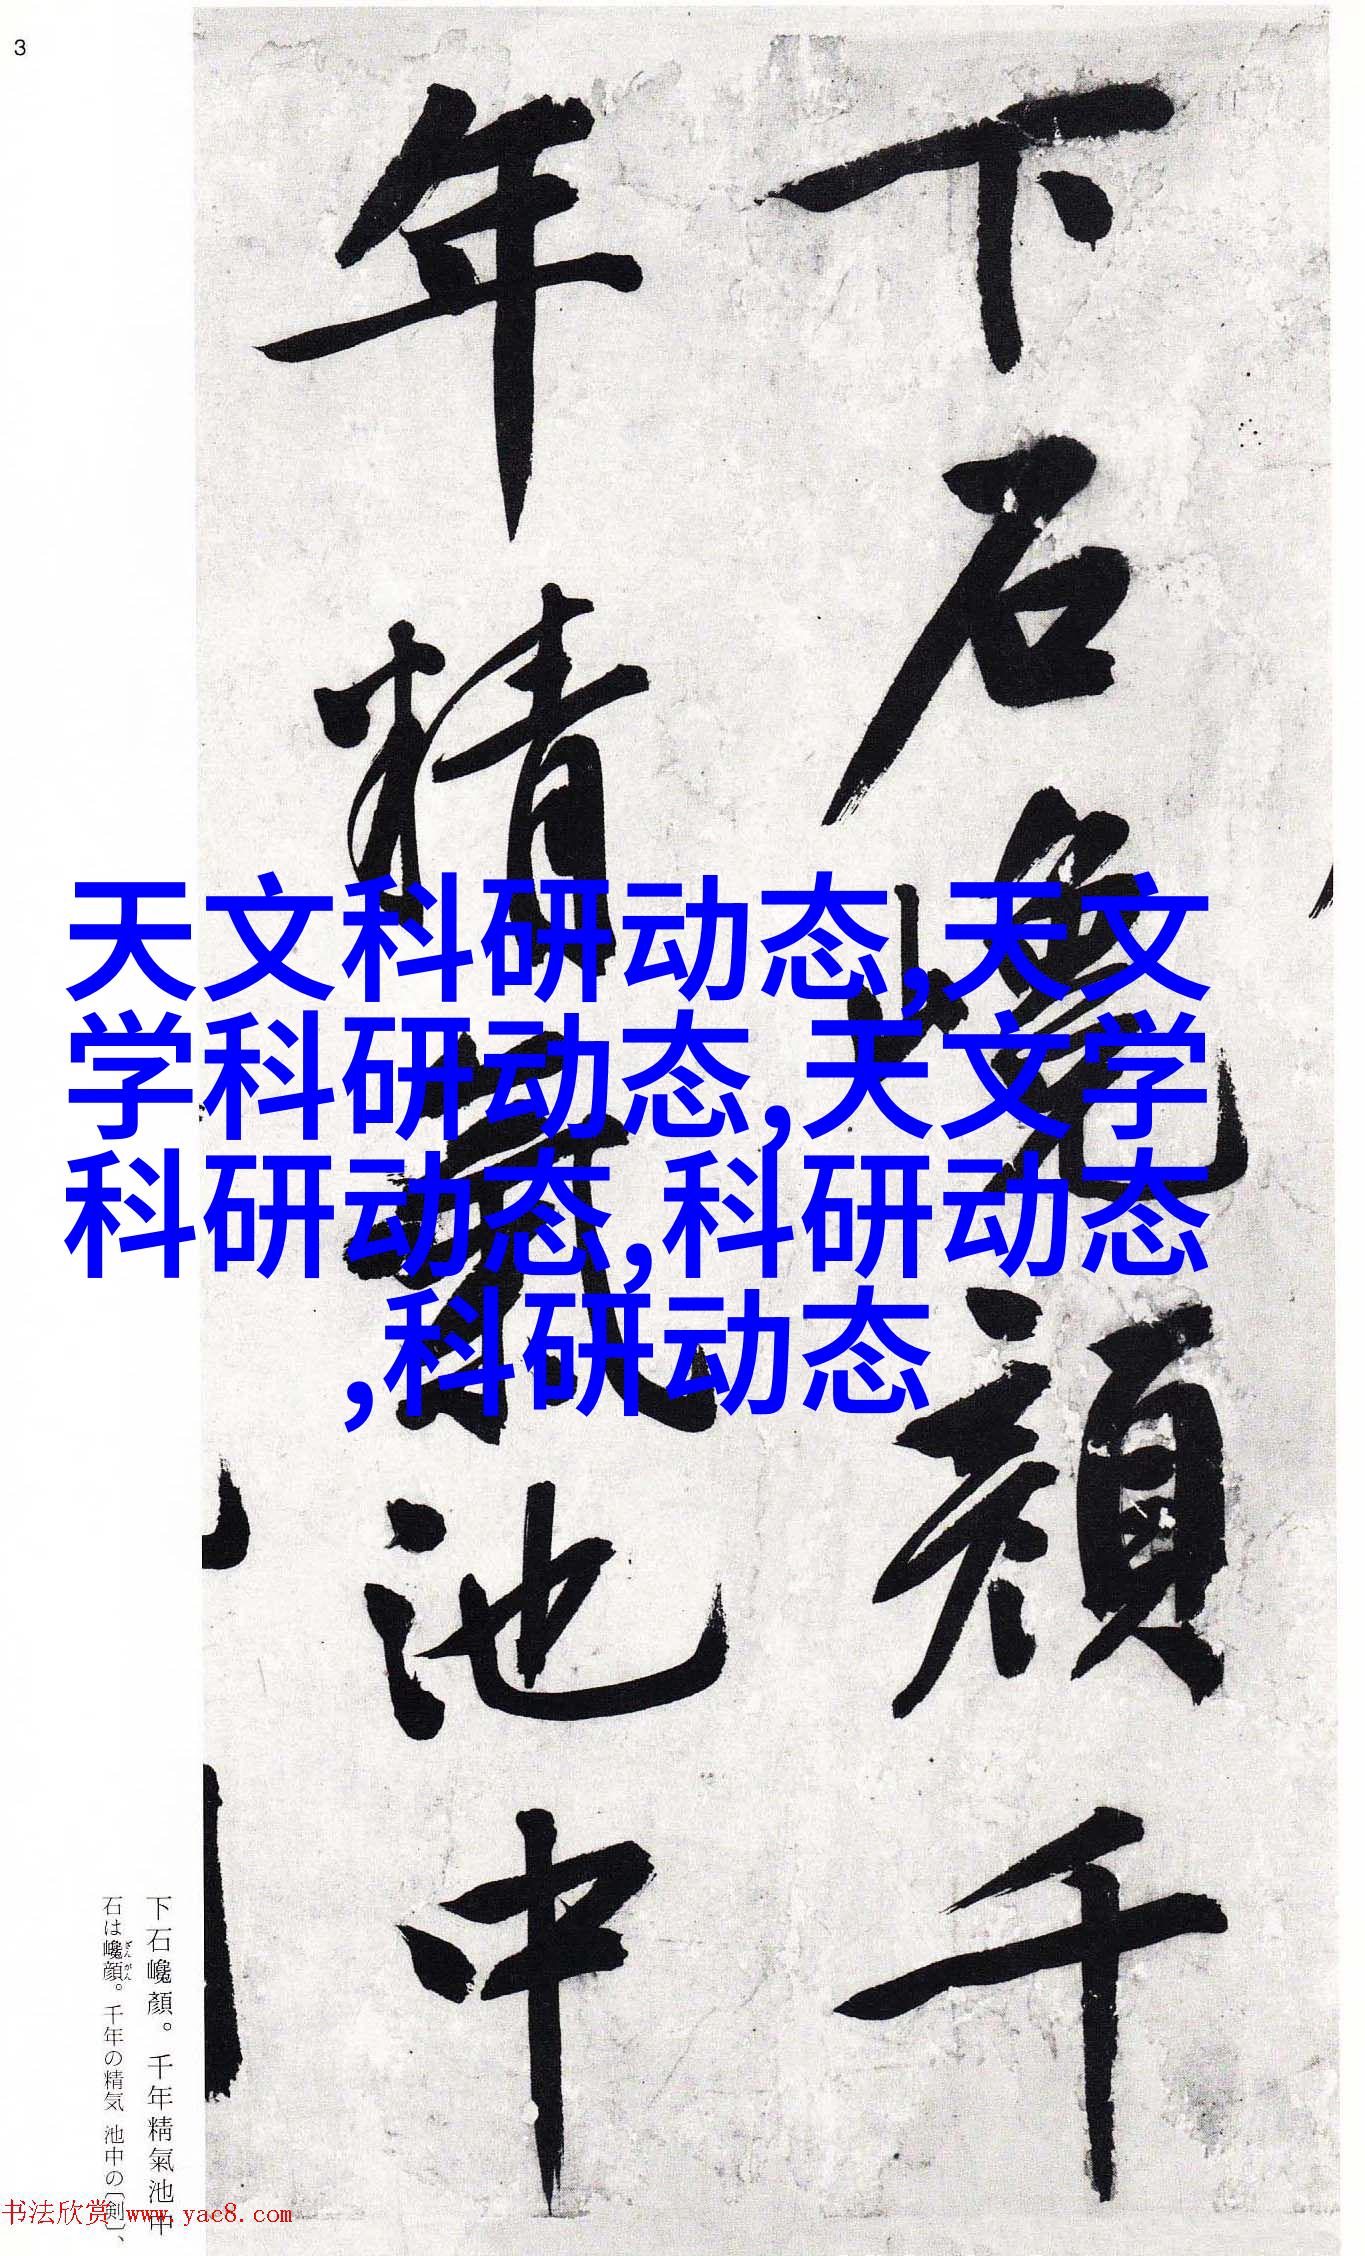 3
下石巉顔千
年精氣池中
天文科研动态,天文
学科研动态,天文学
科研动态,科研动态
,科研动态
下石巉顏。千年精氣池中
石は巉顔。千年の精気 池中の〔剣〕、
ざん がん
书法欣赏 www.yac8.com